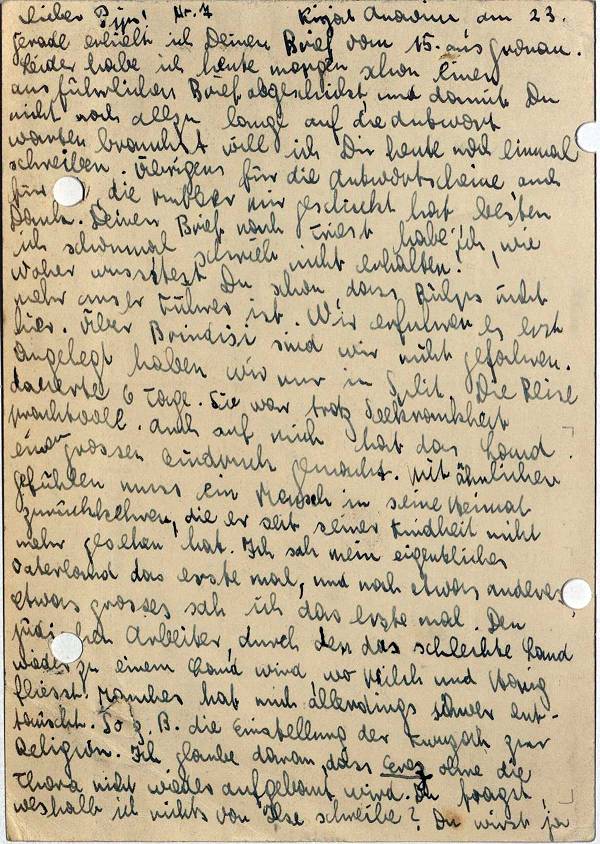 Lieber Pips! Nr. 7 Kirjat Anavim am 23.
Gerade erhielt ich Deinen Brief vom 15. aus Gronau.
Leider habe ich heute morgen schon einen
ausführlichen Brief abgeschickt, und damit Du
nicht noch allzu lange auf die Antwort
warten brauchst will ich Dir heute noch einmal
schreiben. Übrigens für die Antwortscheine, auch
für die, die Mutter mir geschickt hat besten
Dank. Deinen Brief nach Triest habe ich, wie
ich schonmal schrieb nicht erhalten.
Woher wusstest Du schon, dass nicht
mehr unser Führer ist. Wir erfuhren es erst
hier. Über Brindisi sind wir nicht gefahren.
Angelegt haben wir nur in Split. Die Reise
dauerte 6 Tage. Sie war trotz Seekrankheit
prachtvoll. Auch auf mich hat das Land
einen grossen Eindruck gemacht. Mit ähnlichen
Gefühlen muss ein Mensch in seine Heimat
zurückkehren, die er seit seiner Kindheit nicht
mehr gesehen hat. Ich sah mein eigentliches
Vaterland das erste mal, und noch etwas anderes
etwas grosses sah ich das erste mal. Den
jüdischen Arbeiter, durch den das schlechte Land
wieder zu einem Land wird, wo Milch und Honig
fliesst. Manches hat mich allerdings schwer ent-
täuscht. So z. B. die Einstellung der Kwuzoth zur
Religion. Ich glaube daran, dass Erez ohne die
Thora nicht wieder aufgebaut wird. Du fragst,
weshalb ich nichts von Ilse schreibe? Du wirst ja